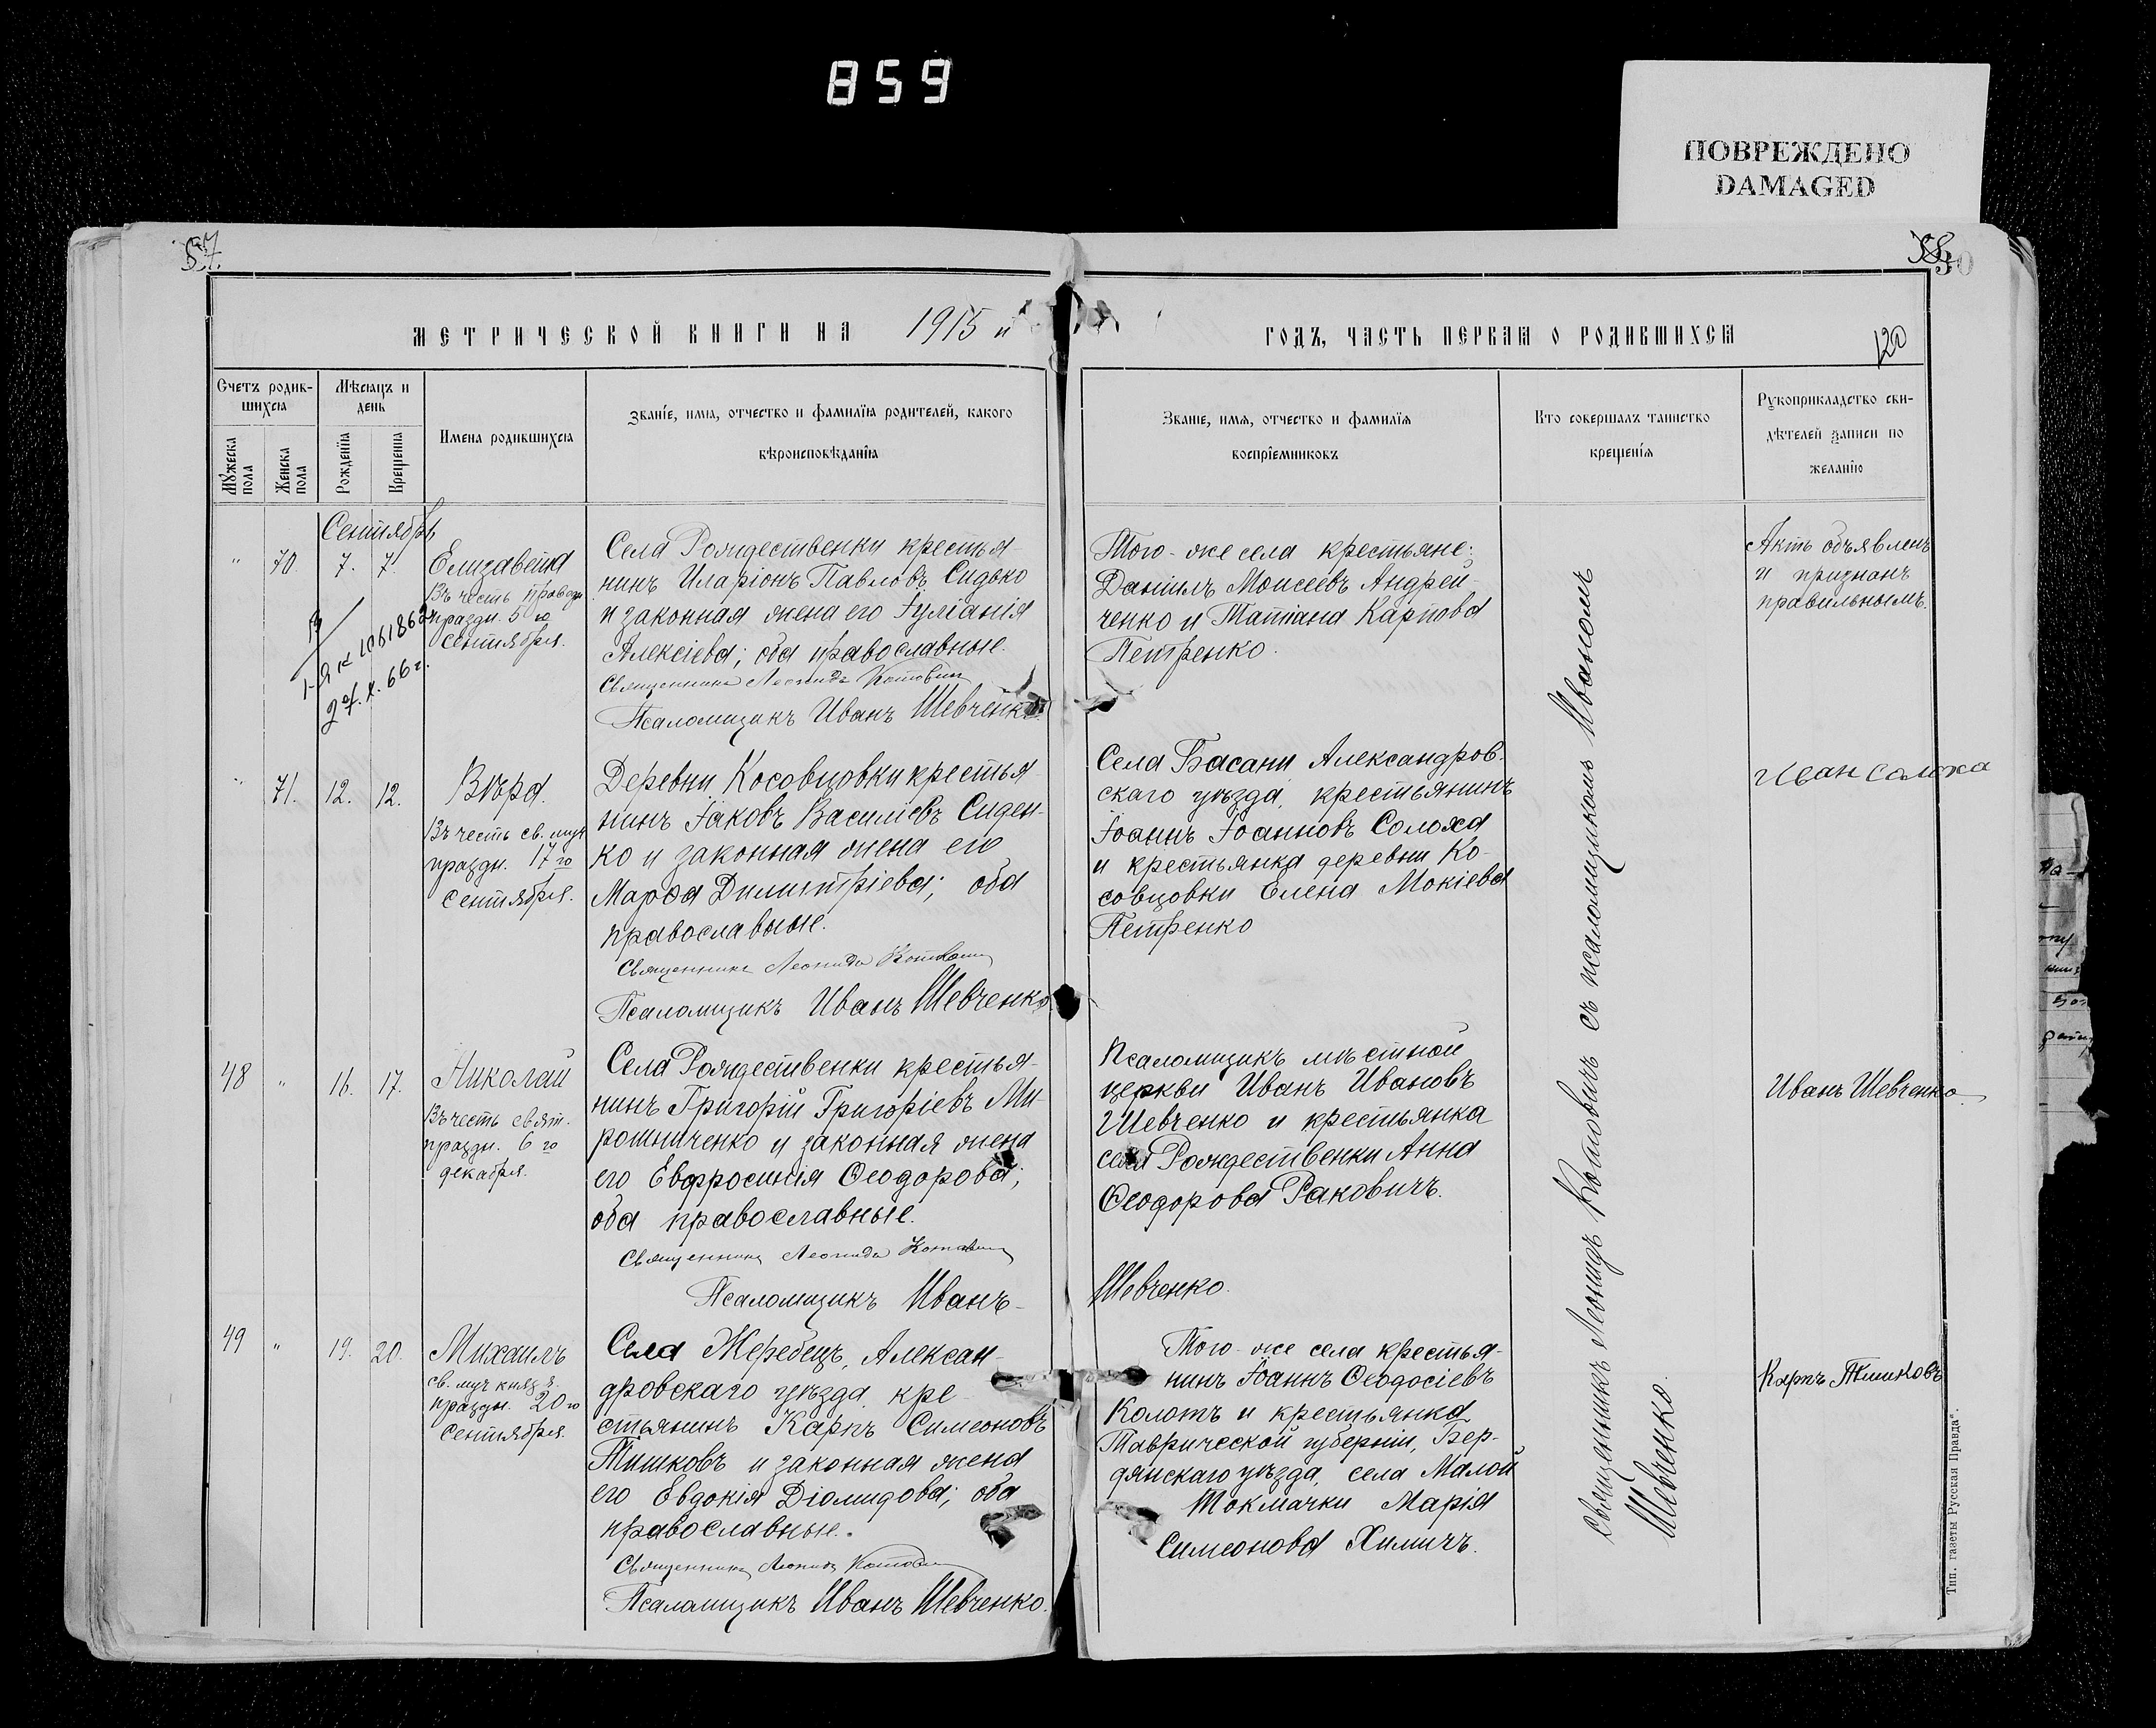 859
ПОВРЕЖДЕНО
DAMAGED
57.
58
50
МЕТРИЧЕСКОЙ КНИГИ НА 1915 й
ГОДЪ, ЧАСТЬ ПЕРВАЯ О РОДИВШИХСЯ
120
Счетъ родив-
шихся
Мѣсяцъ и
день
Мужеска
пола
Женска
пола
Рожденія
Крещенія
Имена родившихся
Званіе, имя, отчество и фамилія родителей, какого
вѣроисповѣданія
Званіе, имя, отчество и фамилія
воспріемниковъ
Кто совершалъ таинство
крещенія
Рукоприкладство сви-
дѣтелей записи по
желанію
Сентябрь
" 70. 7. 7.
Елизавета
Въ честь правед.
праздн. 5 го
сентября.
I-Я К 1061862
27.X.66 г.
Села Рождественки крестья-
нинъ Иларіонъ Павловъ Сидько
и законная жена его Іуліанія
Алексіева; оба православные.
Священникъ Леонидъ Котовичъ
Псаломщикъ Иванъ Шевченко.
Того-же села крестьяне:
Даніилъ Моисеевъ Андрей-
ченко и Татіана Карпова
Петренко.
Актъ объявленъ
и признанъ
правильнымъ.
" 71. 12. 12.
Вѣра.
Въ честь св. муч.
праздн. 17 го
сентября.
Деревни Косовцовки крестья-
нинъ Іаковъ Василіевъ Сиден-
ко и законная жена его
Марфа Димитріева; оба
православные.
Священникъ Леонидъ Котовичъ
Псаломщикъ Иванъ Шевченко
Села Басани Александров-
скаго уѣзда, крестьянинъ
Іоаннъ Іоанновъ Солоха
и крестьянка деревни Ко-
совцовки Елена Мокіева
Петренко
Иван Солоха
48 " 16. 17.
Николай
Въ честь свят.
праздн. 6 го
декабря.
Села Рождественки крестья-
нинъ Григорій Григоріевъ Ми-
рошниченко и законная жена
его Евфросинія Ѳеодорова;
оба православные.
Священникъ Леонидъ Котовичъ
Псаломщикъ Иванъ-
Псаломщикъ мѣстной
церкви Иванъ Ивановъ
Шевченко и крестьянка
села Рождественки Анна
Ѳеодорова Раковичъ.
Шевченко.
Иванъ Шевченко
49 " 19. 20.
Михаилъ
св. муч. князя.
праздн. 20 го
сентября.
Села Жеребецъ, Алексан-
дровскаго уѣзда, кре-
стьянинъ Карпъ Симеоновъ
Тишковъ и законная жена
его Евдокія Діомидова; оба
православные.
Священникъ Леонидъ Котович
Псаломщикъ Иванъ Шевченко.
Того-же села крестья-
нинъ Іоаннъ Ѳеодосіевъ
Колотъ и крестьянка
Таврической губерніи, Бер-
дянскаго уѣзда, села Малой
Токмачки Марія
Симеонова Химичъ.
Карпъ Тишковъ
Священникъ Леонидъ Котовичъ съ псаломщикомъ Иваномъ
Шевченко.
Тип. газеты „Русская Правда".